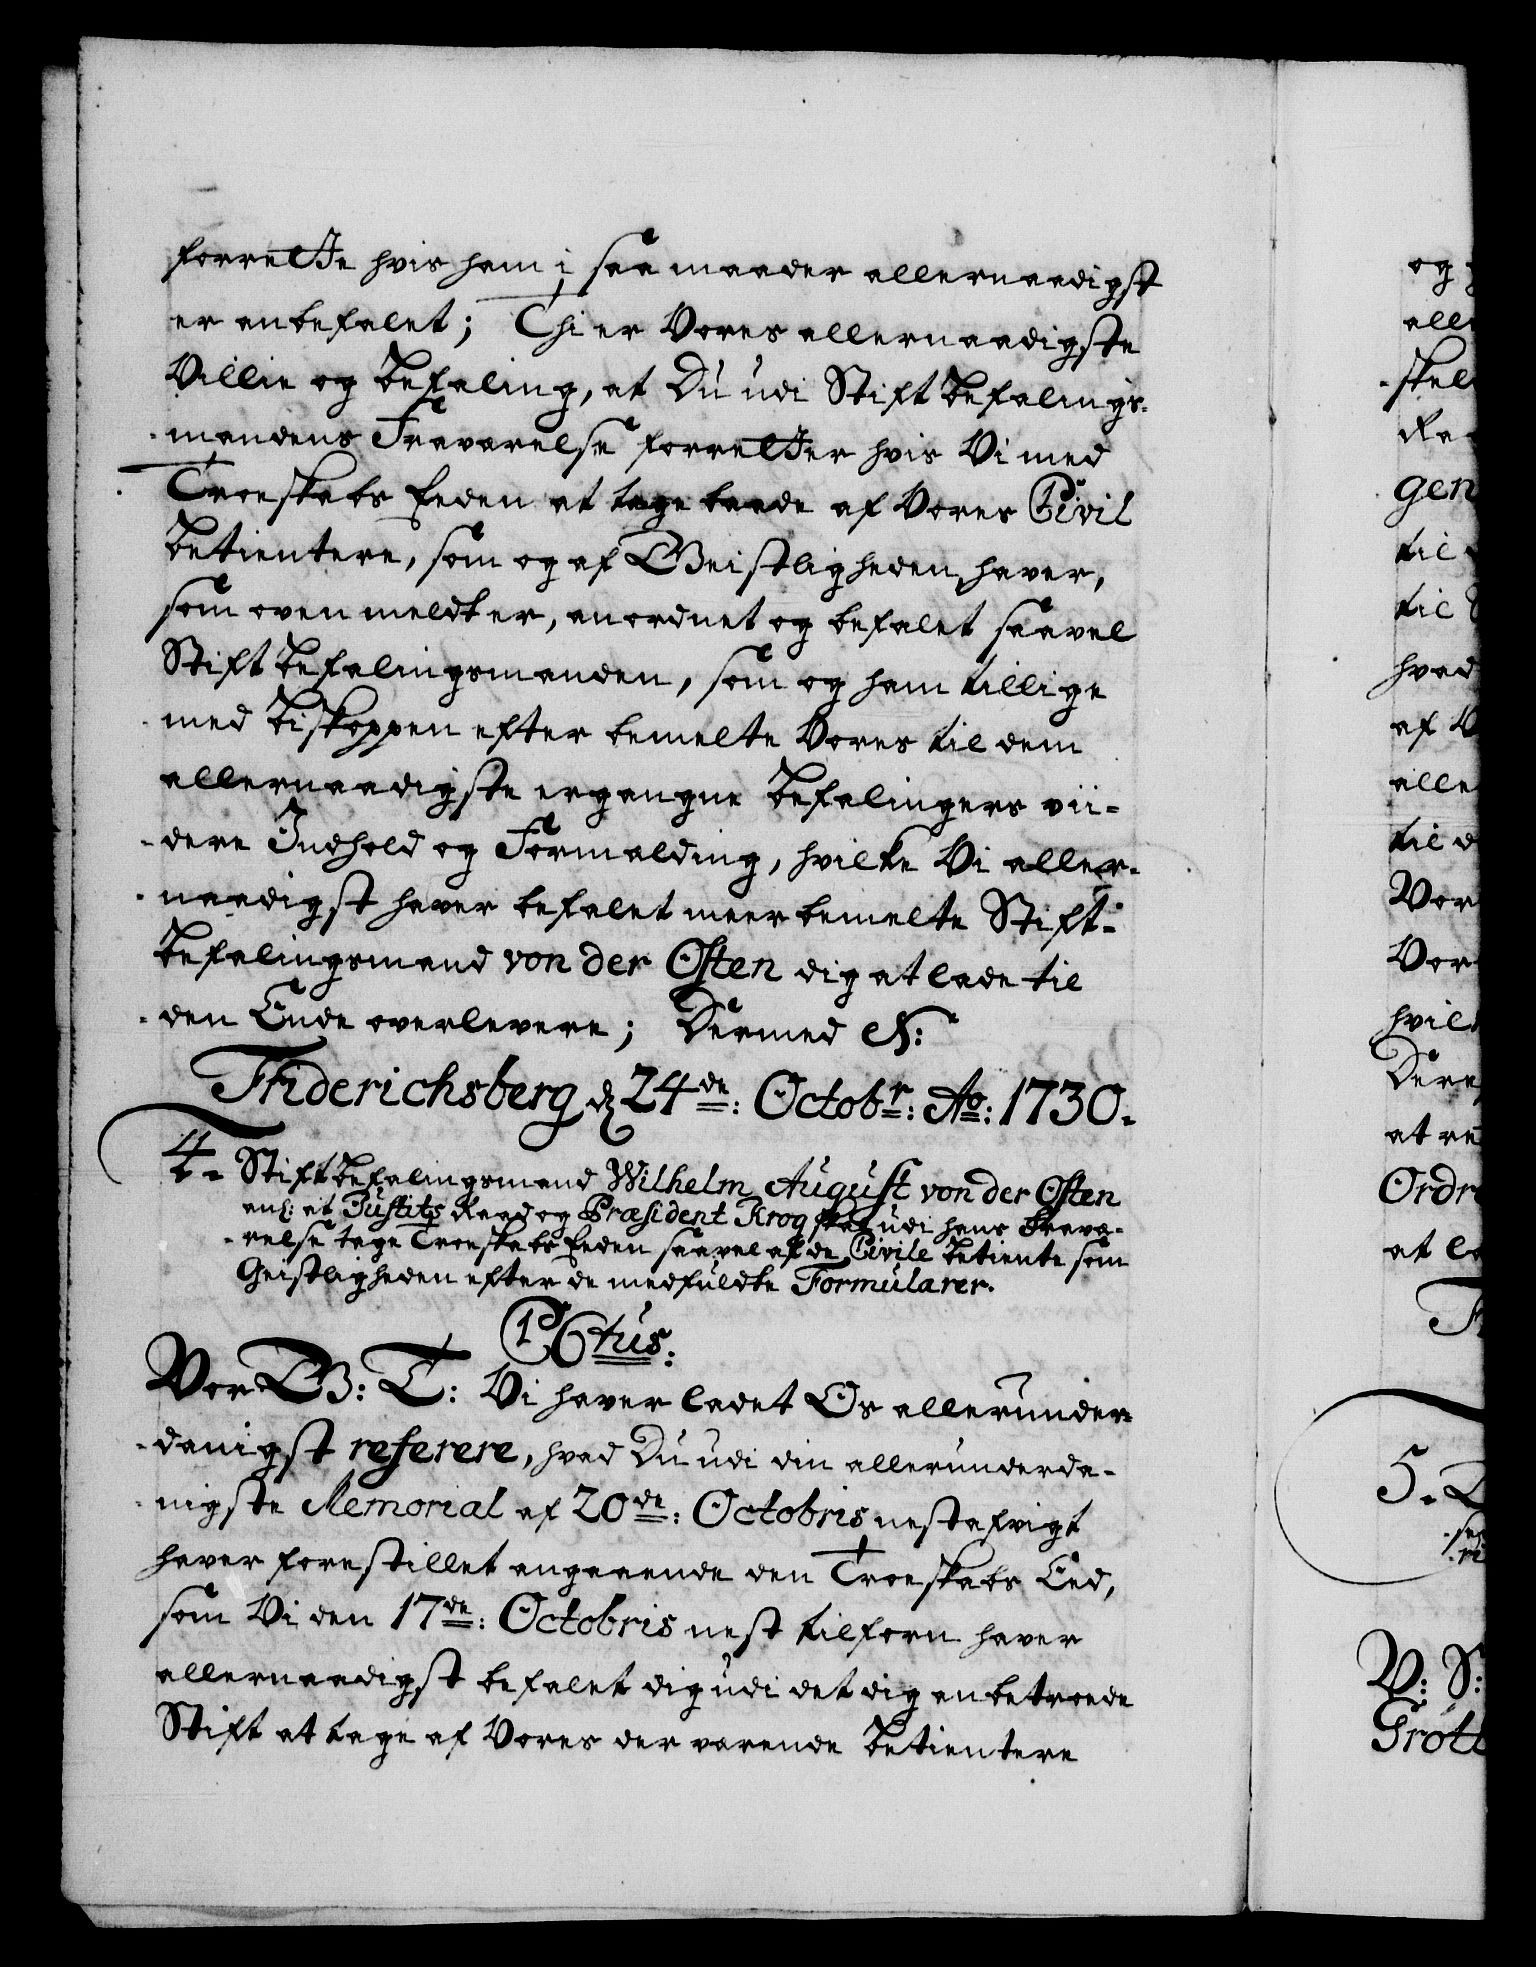 forrette hvis ham i saa maader allernaadigst
er anbefalet; Thi er Vores allernaadigste
Villie og Befaling, at Du udi Stift Befalings-
-mandens Fraværelse forretter hvis Vi med
Troeskabs Eeden at tage baade af Vores Civil
Betientere, som og af Geistligheden, haver,
som oven meldt er, anordnet og befalet saavel
Stift Befalingsmanden, som og ham tillige
med Biskoppen efter bemelte Vores til dem
allernaadigste ergangne Befalingers vii-
-dere Indhold og Formælding, hvilke Vi aller-
-naadigst haver befalet meer bemelte Stift-
Befalingsmand von der Osten dig at lade til
-den Ende overlevere; Dermed &:
Friderichsberg d 24de: Octobr: Ao: 1730.
4. Stift Befalingsmand Wilhelm August von der Osten
anl: at Justits Raad og Præsident Krog skal udi hans Fravæ-
-relse tage Troeskabs Eeden saavel af de Civile Betiente som
Geistligheden efter de medfuldte Formularer.
C6tus:
Vor G: T: Vi haver ladet Os allerunder-
-danigst referere, hvad Du udi din allerunderda-
-nigste Memorial af 20de: Octobris nestafvigt
haver forestillet angaaende den Troeskabs Eed,
som Vi den 17de: Octobris nest tilforn haver
allernaadigst befalet dig udi det dig anbetroede
Stift at tage af Vores der værende Betientere
og
alle
-skel
Ra
gen
til
til
hvad
af V
alle
til d
Vor
Vor
hvil
Der
at re
Ordr
at la
5.
V: S: